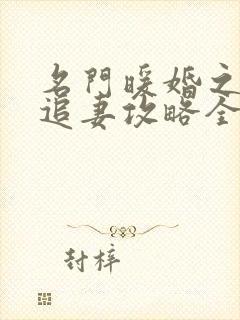 名門暖婚之
追妻攻略全
封梓